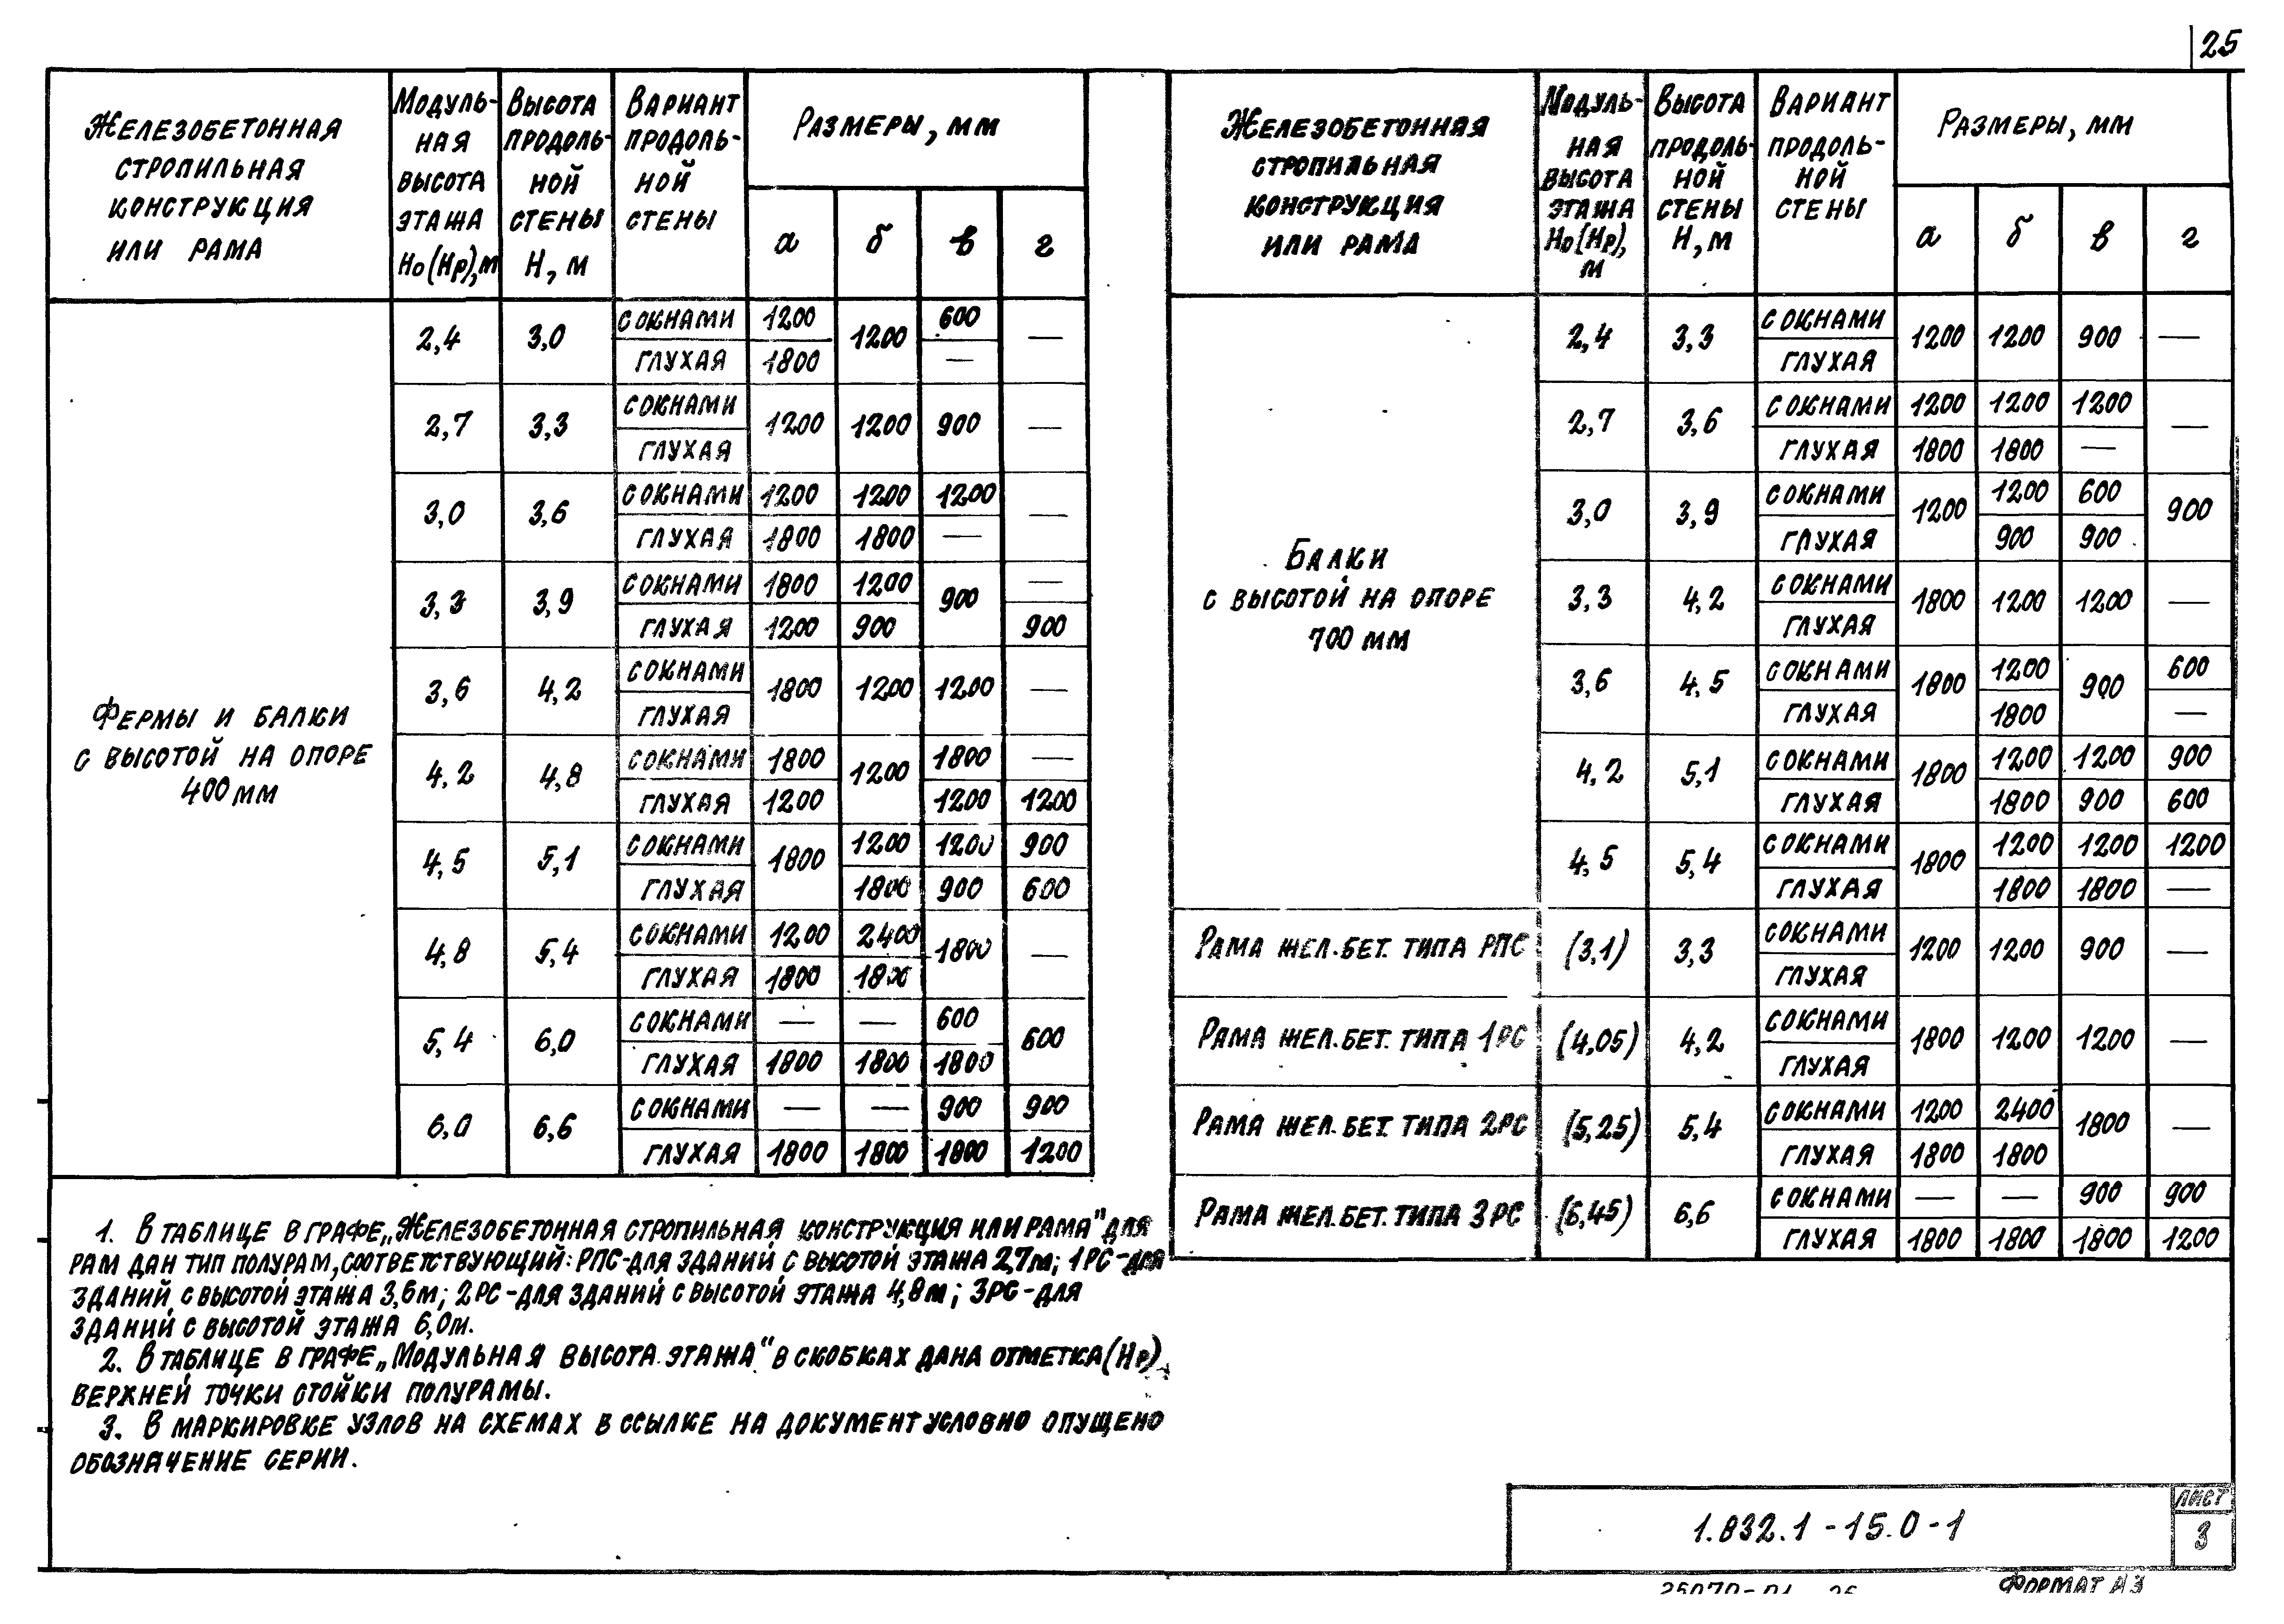 25
Железобетонная стропильная конструкция или рама | Модульная высота этажа Но(Нр), м | Высота продольной стены Н, м | Вариант продольной стены | Размеры, мм
а | б | в | г
Фермы и балки с высотой на опоре 400 мм
2,4 | 3,0 | с окнами | 1200 | 1200 | 600 | —
глухая | 1800 | —
2,7 | 3,3 | с окнами | 1200 | 1200 | 900 | —
глухая
3,0 | 3,6 | с окнами | 1200 | 1200 | 1200 | —
глухая | 1800 | 1800 | —
3,3 | 3,9 | с окнами | 1800 | 1200 | 900 | —
глухая | 1200 | 900 | 900
3,6 | 4,2 | с окнами | 1800 | 1200 | 1200 | —
глухая
4,2 | 4,8 | с окнами | 1800 | 1200 | 1800 | —
глухая | 1200 | 1200 | 1200
4,5 | 5,1 | с окнами | 1800 | 1200 | 1200 | 900
глухая | 1800 | 900 | 600
4,8 | 5,4 | с окнами | 1200 | 2400 | 1800 | —
глухая | 1800 | 1800
5,4 | 6,0 | с окнами | — | — | 600 | 600
глухая | 1800 | 1800 | 1800
6,0 | 6,6 | с окнами | — | — | 900 | 900
глухая | 1800 | 1800 | 1800 | 1200
Железобетонная стропильная конструкция или рама | Модульная высота этажа Но(Нр), м | Высота продольной стены Н, м | Вариант продольной стены | Размеры, мм
а | б | в | г
Балки с высотой на опоре 700 мм
2,4 | 3,3 | с окнами | 1200 | 1200 | 900 | —
глухая
2,7 | 3,6 | с окнами | 1200 | 1200 | 1200 | —
глухая | 1800 | 1800 | —
3,0 | 3,9 | с окнами | 1200 | 1200 | 600 | 900
глухая | 900 | 900
3,3 | 4,2 | с окнами | 1800 | 1200 | 1200 | —
глухая
3,6 | 4,5 | с окнами | 1800 | 1200 | 900 | 600
глухая | 1800 | —
4,2 | 5,1 | с окнами | 1800 | 1200 | 1200 | 900
глухая | 1800 | 900 | 600
4,5 | 5,4 | с окнами | 1800 | 1200 | 1200 | 1200
глухая | 1800 | 1800 | —
Рама жел.бет. типа РПС | (3,1) | 3,3 | с окнами | 1200 | 1200 | 900 | —
глухая
Рама жел.бет. типа 1РС | (4,05) | 4,2 | с окнами | 1800 | 1200 | 1200 | —
глухая
Рама жел.бет. типа 2РС | (5,25) | 5,4 | с окнами | 1200 | 2400 | 1800 | —
глухая | 1800 | 1800
Рама жел.бет. типа 3РС | (6,45) | 6,6 | с окнами | — | — | 900 | 900
глухая | 1800 | 1800 | 1800 | 1200
1. В таблице в графе „Железобетонная стропильная конструкция или рама" для
рам дан тип полурам, соответствующий: РПС-для зданий с высотой этажа 2,7м; 1РС-для
зданий с высотой этажа 3,6м; 2РС-для зданий с высотой этажа 4,8м; 3РС-для
зданий с высотой этажа 6,0м.
2. В таблице в графе „Модульная высота этажа" в скобках дана отметка (Нр)
верхней точки стойки полурамы.
3. В маркировке узлов на схемах в ссылке на документ условно опущено
обозначение серии.
1.832.1-15.0-1
Лист
3
Формат А3